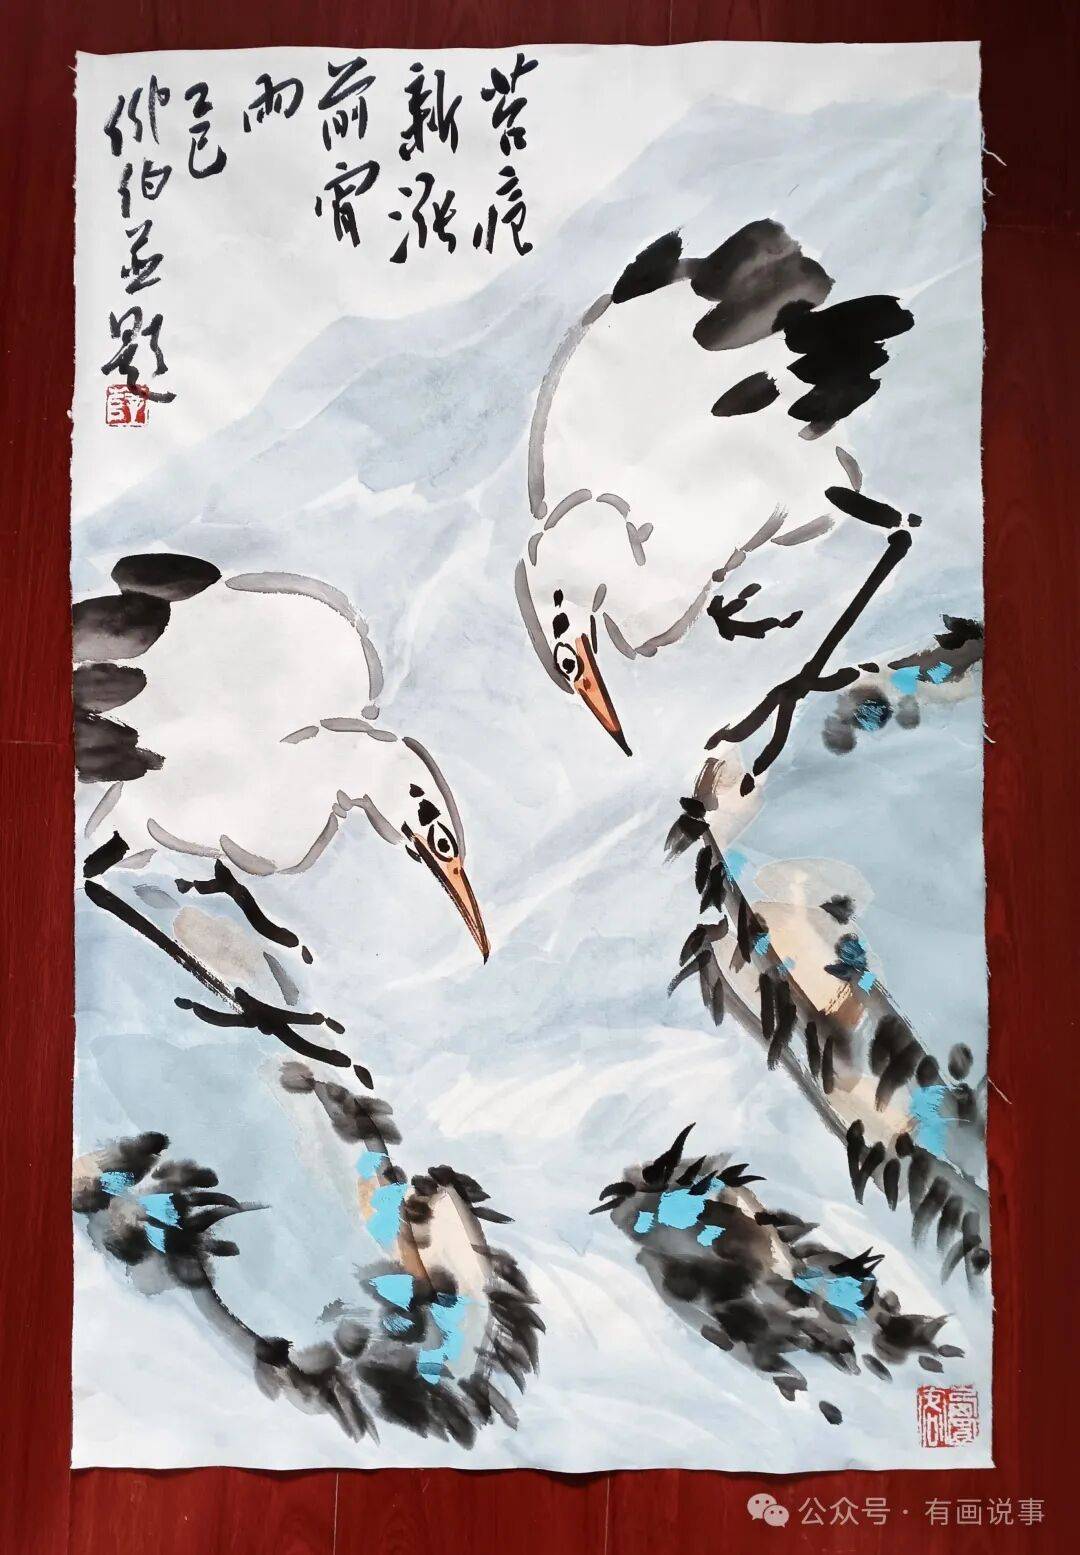 苔痕
新涨
前宵
雨
乙巳
伯並题
公众号 · 有画说事